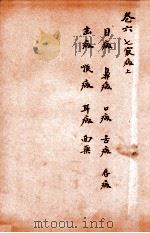 卷六 七竅病上
目病 鼻病 口病 舌病 唇病
齒病 喉病 耳病 面病
mtoou.info